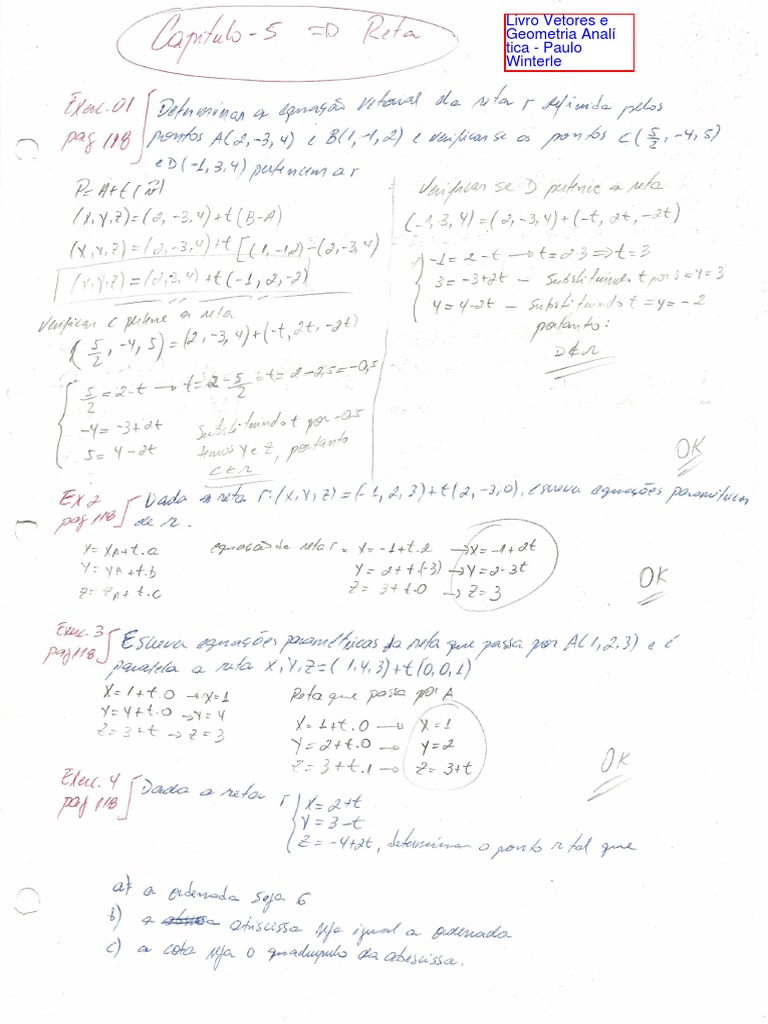 Capítulo-5 => Reta
Livro Vetores e
Geometria Analí
tica - Paulo
Winterle
Exerc. 01
pag 118
Determinar a equação vetorial da reta r definida pelos
pontos A(2,-3,4) e B(1,-1,2) e verificar se os pontos C(5/2, -4, 5)
e D(-1,3,4) pertencem a r
P=A+t(v⃗)
(X,Y,Z)=(2,-3,4)+t(B-A)
(X,Y,Z)=(2,-3,4)+t[(1,-1,2)-(2,-3,4)
(X,Y,Z)=(2,3,4)+t(-1,2,-2)
Verificar C pertence a reta
(5/2, -4, 5)=(2,-3,4)+(-t, 2t, -2t)
5/2=2-t → t=2-5/2=t=2-2,5=-0,5
-4=-3+2t
5=4-2t
Substituindo t por -0,5
temos Y e Z, portanto
C∈r
Verificar se D pertence a reta
(-1,3,4)=(2,-3,4)+(-t, 2t, -2t)
-1=2-t → t=2+3=>t=3
3=-3+2t - Substituindo t por 3=Y=3
4=4-2t - Substituindo t=y=-2
portanto:
D∉r
OK
Ex 2
pag 118
Dada a reta r:(X,Y,Z)=(-1,2,3)+t(2,-3,0), escreva equações paramétricas
de r.
X=XA+t.a
Y=YA+t.b
Z=ZA+t.c
equação da reta r = X=-1+t.2 → X=-1+2t
Y=2+t(-3) → Y=2-3t
Z=3+t.0 → Z=3
OK
Exerc. 3
pag 118
Escreva equações paramétricas da reta que passa por A(1,2,3) e é
paralela a reta X,Y,Z=(1,4,3)+t(0,0,1)
X=1+t.0 → X=1
Y=4+t.0 → Y=4
Z=3+t → Z=3
Reta que passa por A
X=1+t.0 → X=1
Y=2+t.0 → Y=2
Z=3+t.1 → Z=3+t
OK
Exerc. 4
pag 118
Dada a reta r
X=2+t
Y=3-t
Z=-4+2t, determinar o ponto r tal que
a) a ordenada seja 6
b) a abscissa seja igual a ordenada
c) a cota seja o quádruplo da abscissa.